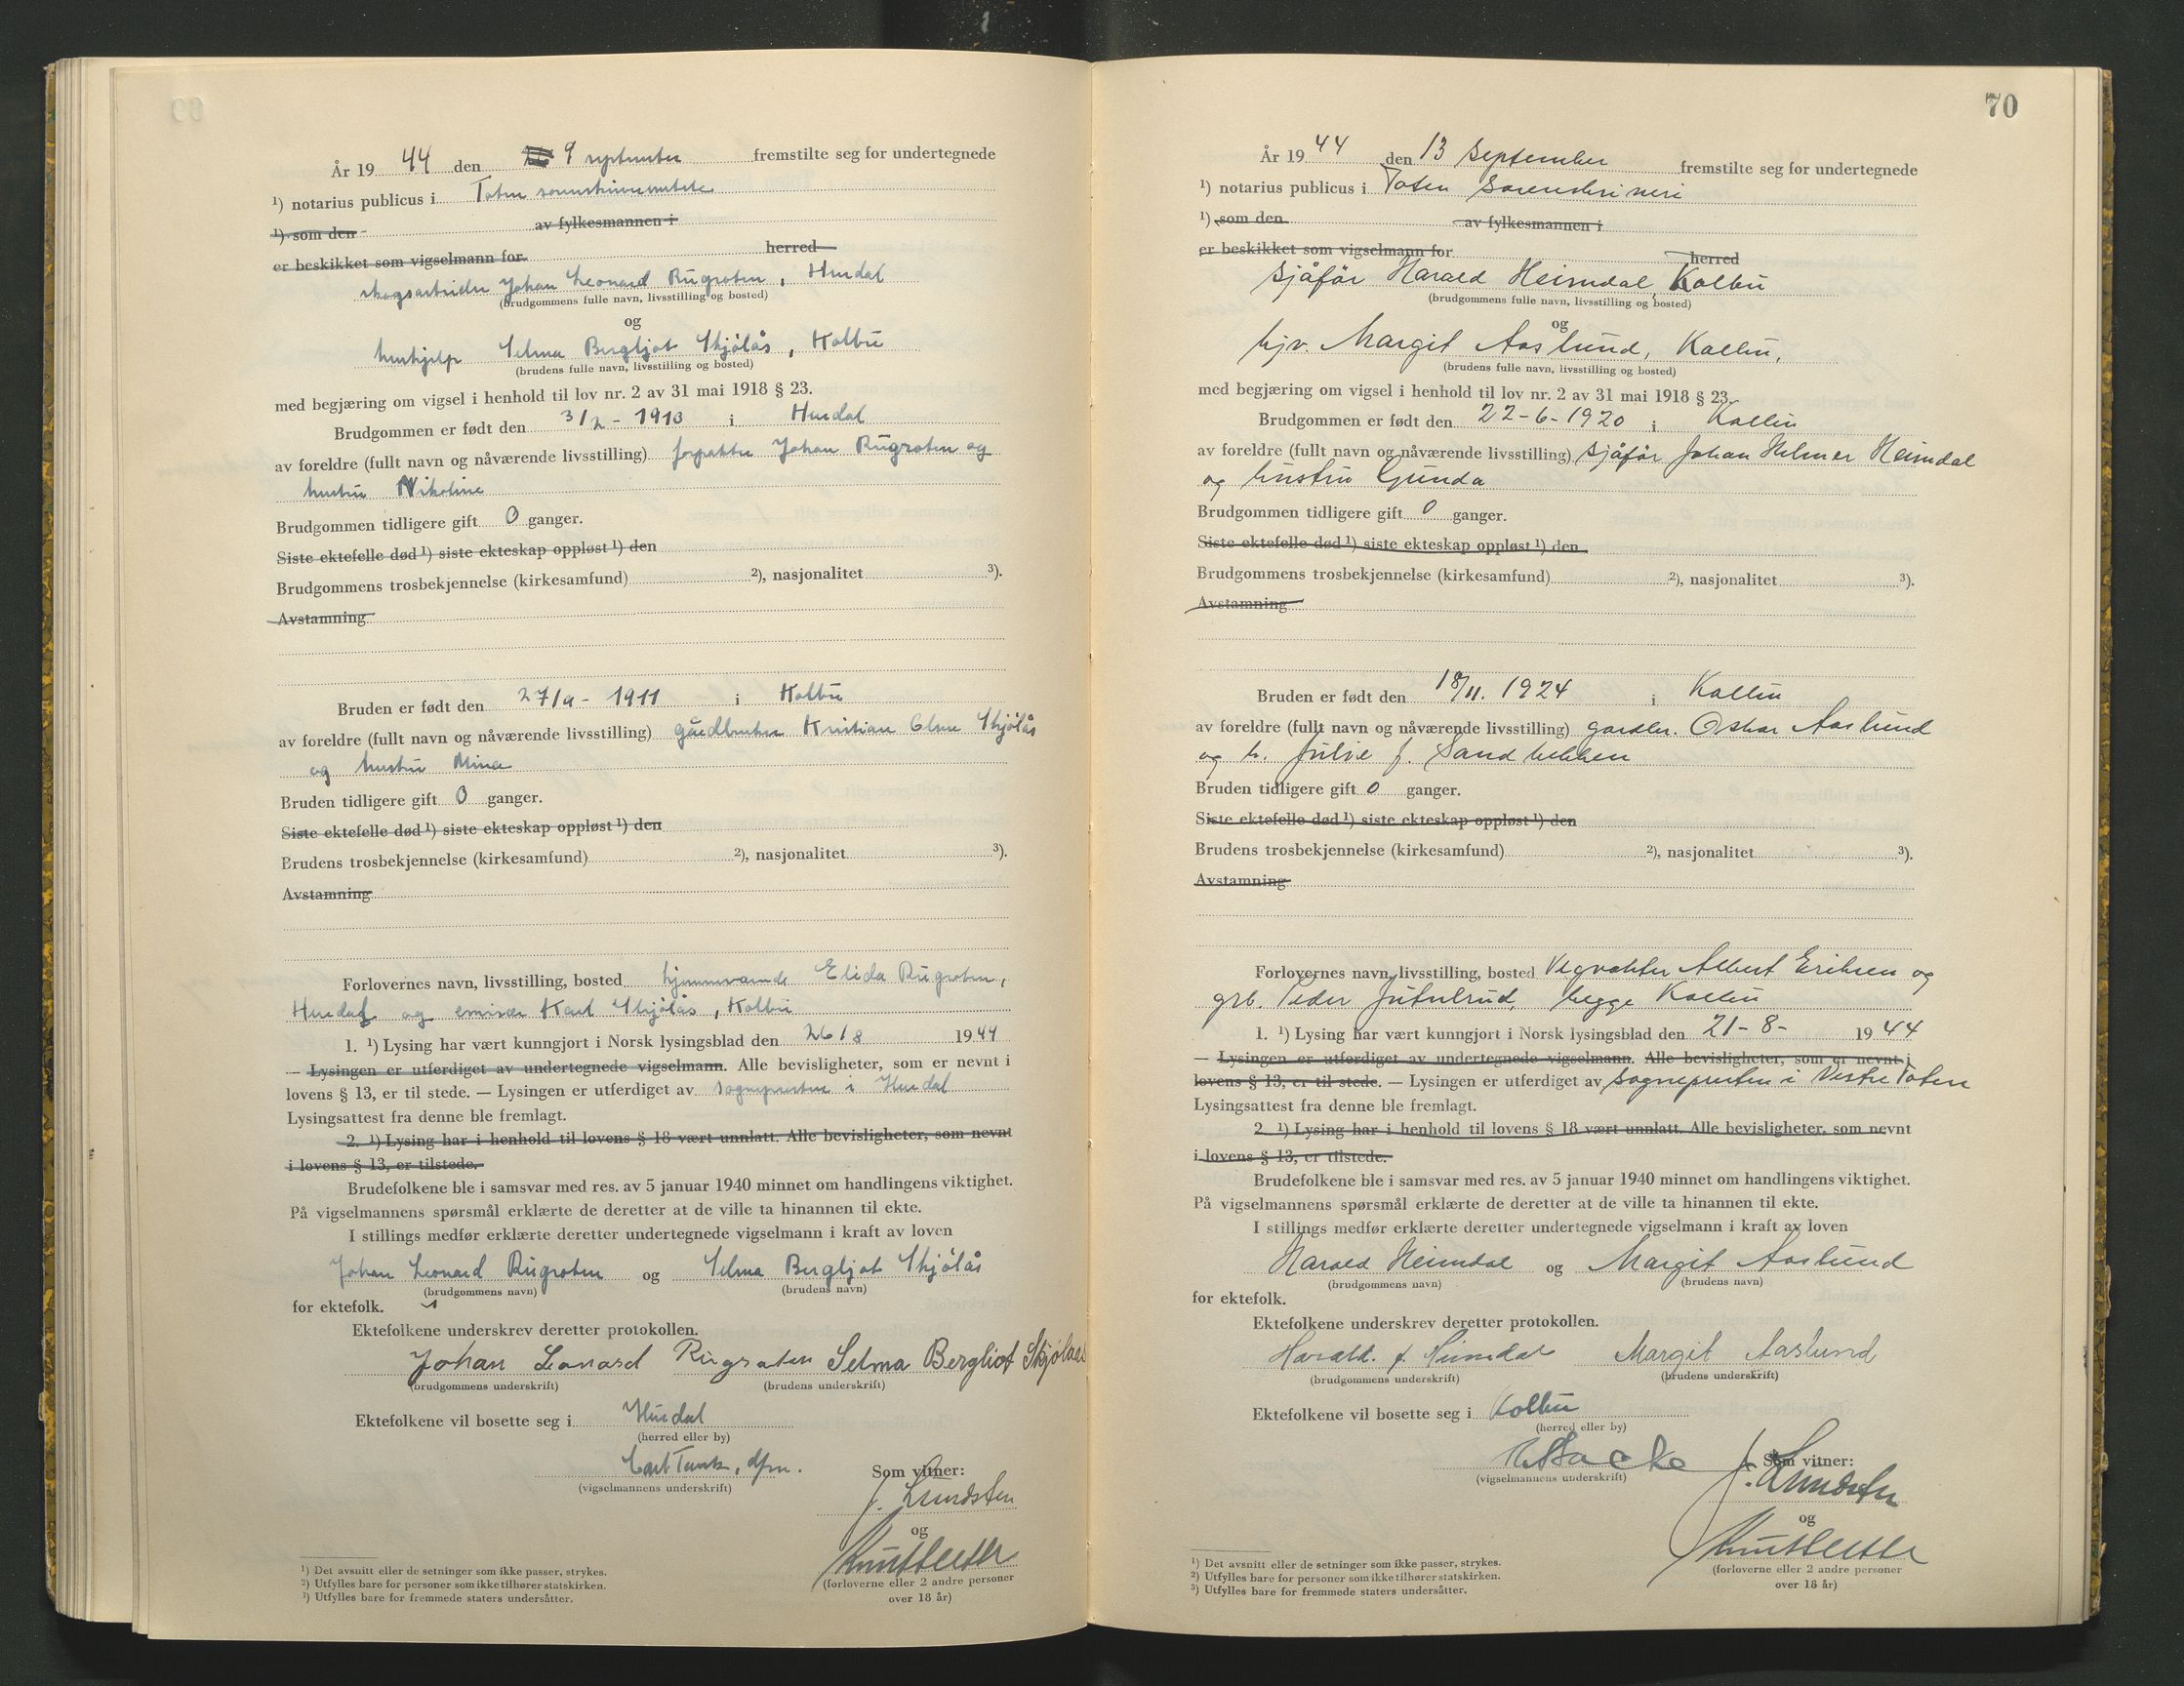 År 19 44 den 9 september fremstilte seg for undertegnede
¹) notarius publicus i Toten sorenskriverembete
¹) som den av fylkesmannen i
er beskikket som vigselmann for herred
skogsarbeider Johan Leonard Rugroten, Hurdal
(brudgommens fulle navn, livsstilling og bosted)
og
hushjelp Selma Bergljot Skjölås, Kolbu
(brudens fulle navn, livsstilling og bosted)
med begjæring om vigsel i henhold til lov nr. 2 av 31 mai 1918 § 23.
Brudgommen er født den 3/2 - 1913 i Hurdal
av foreldre (fullt navn og nåværende livsstilling) forpakter Johan Rugroten og
hustru Nikoline
Brudgommen tidligere gift 0 ganger.
Siste ektefelle død ¹) siste ekteskap oppløst ¹) den
Brudgommens trosbekjennelse (kirkesamfund) ²), nasjonalitet ³).
Avstamning
Bruden er født den 27/ - 1911 i Kolbu
av foreldre (fullt navn og nåværende livsstilling) gårdbruker Kristian Olsen Skjölås
og hustru Mina
Bruden tidligere gift 0 ganger.
Siste ektefelle død ¹) siste ekteskap oppløst ¹) den
Brudens trosbekjennelse (kirkesamfund) ²), nasjonalitet ³).
Avstamning
Forlovernes navn, livsstilling, bosted hjemmeværende Elida Rugroten,
Hurdal og Karl Skjölås, Kolbu
1. ¹) Lysing har vært kunngjort i Norsk lysingsblad den 26/8 1944
— Lysingen er utferdiget av undertegnede vigselmann. Alle bevisligheter, som er nevnt i
lovens § 13, er til stede. — Lysingen er utferdiget av sogneprestene i Hurdal
Lysingsattest fra denne ble fremlagt.
2. ¹) Lysing har i henhold til lovens § 18 vært unnlatt. Alle bevisligheter, som nevnt
i lovens § 13, er tilstede.
Brudefolkene ble i samsvar med res. av 5 januar 1940 minnet om handlingens viktighet.
På vigselmannens spørsmål erklærte de deretter at de ville ta hinannen til ekte.
I stillings medfør erklærte deretter undertegnede vigselmann i kraft av loven
Johan Leonard Rugroten og Selma Bergljot Skjölås
(brudgommens navn) (brudens navn)
for ektefolk.
Ektefolkene underskrev deretter protokollen.
Johan Leonard Rugroten Selma Bergliot Skjölaas
(brudgommens underskrift) (brudens underskrift)
Ektefolkene vil bosette seg i Hurdal
(herred eller by)
Carl dfm. Som vitner:
(vigselmannens underskrift)
J. Lundsten
og
Knut
(forloverne eller 2 andre personer
over 18 år)
¹) Det avsnitt eller de setninger som ikke passer, strykes.
²) Utfylles bare for personer som ikke tilhører statskirken.
³) Utfylles bare for fremmede staters undersåtter.
70
År 19 44 den 13 September fremstilte seg for undertegnede
¹) notarius publicus i Toten Sorenskriveri
¹) som den av fylkesmannen i
er beskikket som vigselmann for herred
sjåfør Harald Heimdal, Kolbu
(brudgommens fulle navn, livsstilling og bosted)
og
hjv. Margit Aaslund, Kolbu,
(brudens fulle navn, livsstilling og bosted)
med begjæring om vigsel i henhold til lov nr. 2 av 31 mai 1918 § 23.
Brudgommen er født den 22-6-1920 i Kolbu
av foreldre (fullt navn og nåværende livsstilling) sjåfør Johan Helmer Heimdal
og hustru Gunda
Brudgommen tidligere gift 0 ganger.
Siste ektefelle død ¹) siste ekteskap oppløst ¹) den
Brudgommens trosbekjennelse (kirkesamfund) ²), nasjonalitet ³).
Avstamning
Bruden er født den 18/11. 1924 i Kolbu
av foreldre (fullt navn og nåværende livsstilling) gardbr. Oskar Aaslund
og h. Julie f. Sandbekken
Bruden tidligere gift 0 ganger.
Siste ektefelle død ¹) siste ekteskap oppløst ¹) den
Brudens trosbekjennelse (kirkesamfund) ²), nasjonalitet ³).
Avstamning
Forlovernes navn, livsstilling, bosted Vegvokter Albert Eriksen og
grb. Peder Jutulrud, begge Kolbu
1. ¹) Lysing har vært kunngjort i Norsk lysingsblad den 21-8- 1944
— Lysingen er utferdiget av undertegnede vigselmann. Alle bevisligheter, som er nevnt i
lovens § 13, er til stede. — Lysingen er utferdiget av sognepresten i Vestre Toten
Lysingsattest fra denne ble fremlagt.
2. ¹) Lysing har i henhold til lovens § 18 vært unnlatt. Alle bevisligheter, som nevnt
i lovens § 13, er tilstede.
Brudefolkene ble i samsvar med res. av 5 januar 1940 minnet om handlingens viktighet.
På vigselmannens spørsmål erklærte de deretter at de ville ta hinannen til ekte.
I stillings medfør erklærte deretter undertegnede vigselmann i kraft av loven
Harald Heimdal og Margit Aaslund
(brudgommens navn) (brudens navn)
for ektefolk.
Ektefolkene underskrev deretter protokollen.
Harald. J. Heimdal Margit Aaslund
(brudgommens underskrift) (brudens underskrift)
Ektefolkene vil bosette seg i Kolbu
(herred eller by)
Som vitner:
(vigselmannens underskrift)
J. Lundsten
og
Knut
(forloverne eller 2 andre personer
over 18 år)
¹) Det avsnitt eller de setninger som ikke passer, strykes.
²) Utfylles bare for personer som ikke tilhører statskirken.
³) Utfylles bare for fremmede staters undersåtter.